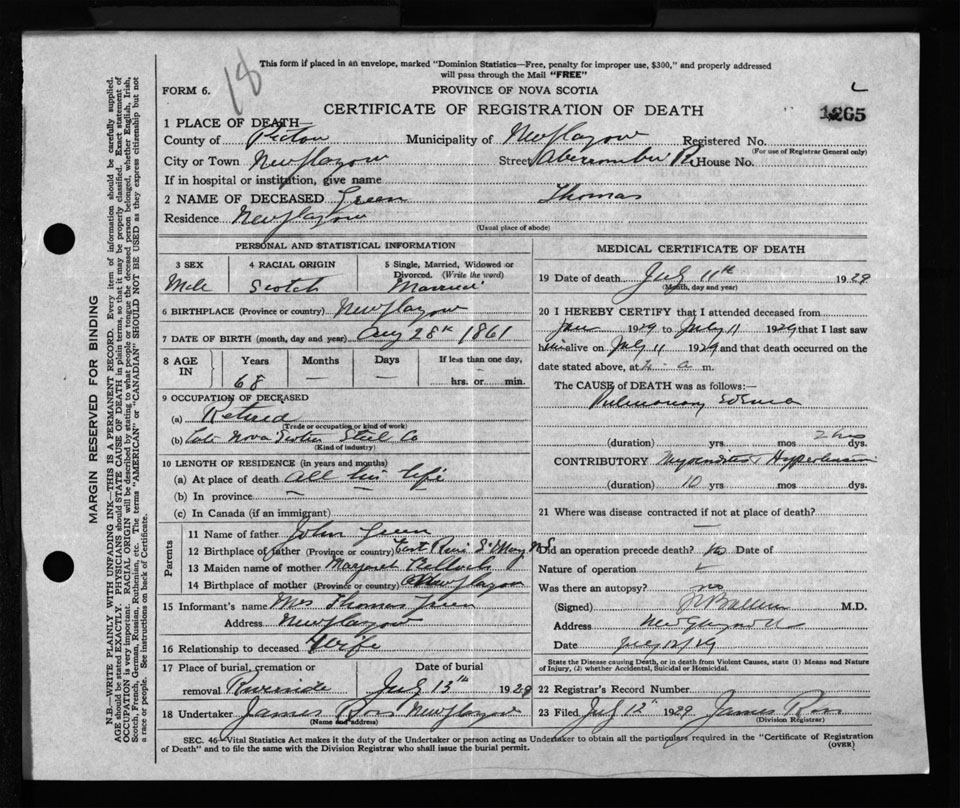 18
This form if placed in an envelope, marked "Dominion Statistics—Free, penalty for improper use, $300," and properly addressed
will pass through the Mail "FREE"
FORM 6.
PROVINCE OF NOVA SCOTIA
CERTIFICATE OF REGISTRATION OF DEATH
1265
1 PLACE OF DEATH—
County of Pictou Municipality of New Glasgow Registered No.
(For use of Registrar General only)
City or Town New Glasgow Street Abercrombie Rd House No.
If in hospital or institution, give name
2 NAME OF DECEASED Green Thomas
Residence New Glasgow
(Usual place of abode)
PERSONAL AND STATISTICAL INFORMATION
3 SEX
Male
4 RACIAL ORIGIN
Scotch
5 Single, Married, Widowed or
Divorced. (Write the word)
Married
6 BIRTHPLACE (Province or country) New Glasgow
7 DATE OF BIRTH (month, day and year) Aug 28th 1861
8 AGE IN
Years Months Days If less than one day,
68 — — hrs. or min.
9 OCCUPATION OF DECEASED
(a) Retired
(Trade or occupation or kind of work)
(b) Late Nova Scotia Steel Co
(Kind of industry)
10 LENGTH OF RESIDENCE (in years and months)
(a) At place of death all his life
(b) In province — —
(c) In Canada (if an immigrant)
Parents
11 Name of father John Green
12 Birthplace of father (Province or country) East River St Mary N.S.
13 Maiden name of mother Margaret
14 Birthplace of mother (Province or country) New Glasgow
15 Informant's name Mrs Thomas Green
Address New Glasgow
16 Relationship to deceased Wife
17 Place of burial, cremation or Date of burial
removal Riverside July 13th 1929
18 Undertaker James Ross New Glasgow
(Name and address)
MEDICAL CERTIFICATE OF DEATH
19 Date of death July 11th 1929
(Month, day and year)
20 I HEREBY CERTIFY that I attended deceased from
Jan 1929 to July 11 1929 that I last saw
him alive on July 11 1929 and that death occurred on the
date stated above, at 4 a m.
The CAUSE of DEATH was as follows:—
Pulmonary edema
(duration) yrs. mos 2 hrs dys.
CONTRIBUTORY Myocarditis & Hypertension
(duration) 10 yrs. mos. dys.
21 Where was disease contracted if not at place of death?
—
Did an operation precede death? No Date of
Nature of operation
Was there an autopsy? no
(Signed) M.D.
Address New Glasgow N.S.
Date July 12/29
State the Disease causing Death, or in death from Violent Causes, state (1) Means and Nature
of Injury, (2) whether Accidental, Suicidal or Homicidal.
22 Registrar's Record Number
23 Filed July 12th 1929 James Ross
(Division Registrar)
SEC. 46—Vital Statistics Act makes it the duty of the Undertaker or person acting as Undertaker to obtain all the particulars required in the "Certificate of Registration
of Death" and to file the same with the Division Registrar who shall issue the burial permit.
(OVER)
MARGIN RESERVED FOR BINDING
N.B.—WRITE PLAINLY WITH UNFADING INK—THIS IS A PERMANENT RECORD. Every item of information should be carefully supplied.
AGE should be stated EXACTLY. PHYSICIANS should STATE CAUSE OF DEATH in plain terms, so that it may be properly classified. Exact statement of
OCCUPATION is very important. RACIAL ORIGIN will be described by stating to what people or tongue the deceased person belonged, whether English, Irish,
Scotch, French, German, Russian, Ruthenian, etc. The terms "AMERICAN" or "CANADIAN" SHOULD NOT BE USED as they express citizenship but not
a race or people. See instructions on back of Certificate.